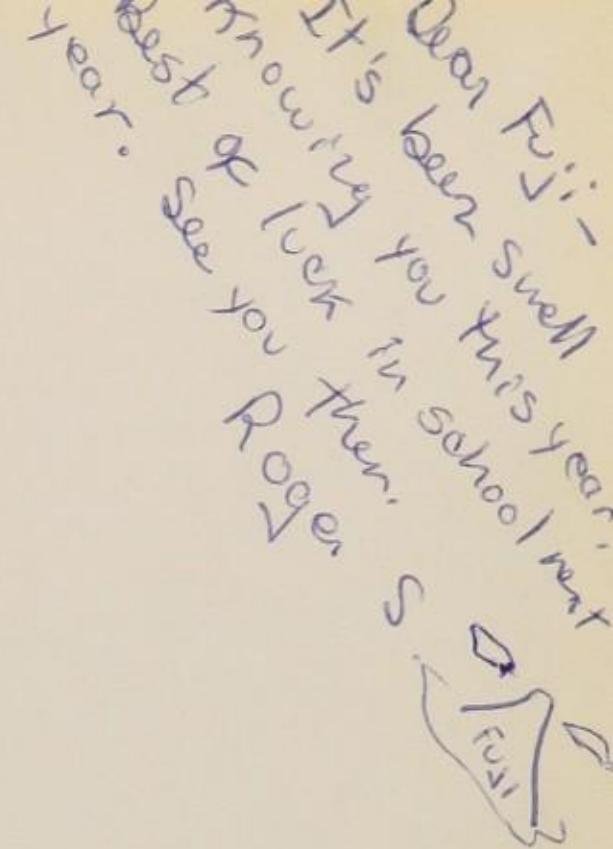 Dear Fuji -
It's been swell
Knowing you this year.
Best of luck in school next
year. See you then.
Roger S
FUJI